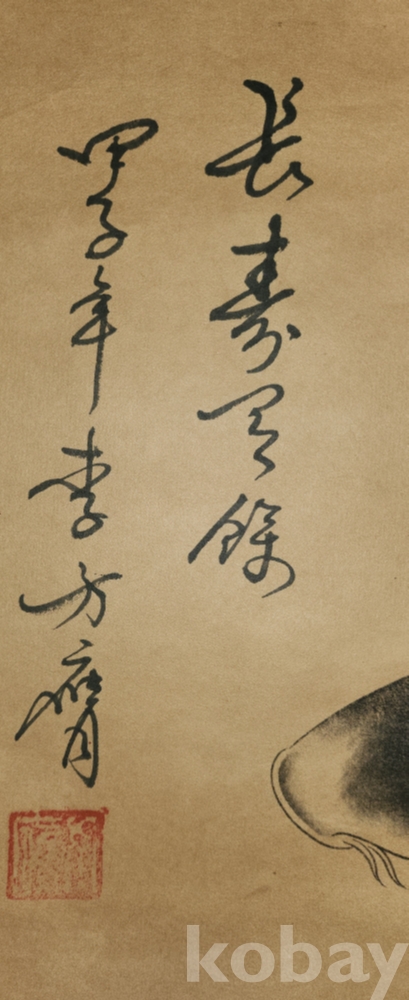 長壽有餘
甲子年李方膺
kobay